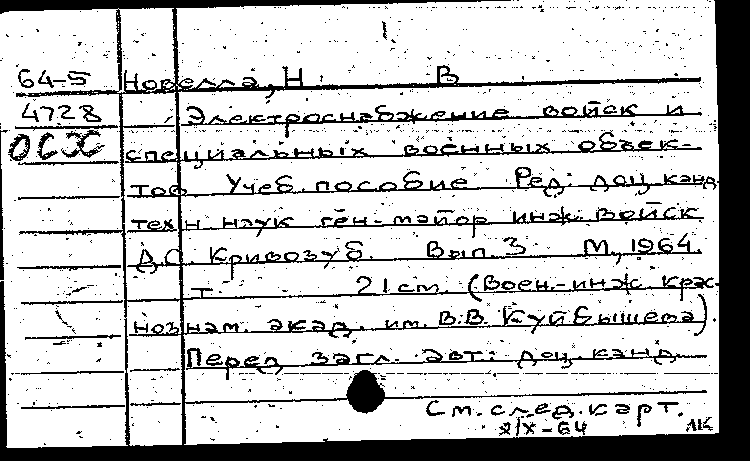 64-5 Новелла, Н. В.
4728 Электроснабжение войск и
специальных военных объек-
тов. Учеб. пособие. Ред: доц. канд.
техн. наук ген.-майор инж. войск
Д.С. Кривозуб. Вып. 3 М., 1964.
т. 21 см. (Воен.-инж. крас-
нознам. акад. им. В.В. Куйбышева).
Перед загл. авт: доц. канд.
См. след. карт.
2/X-64